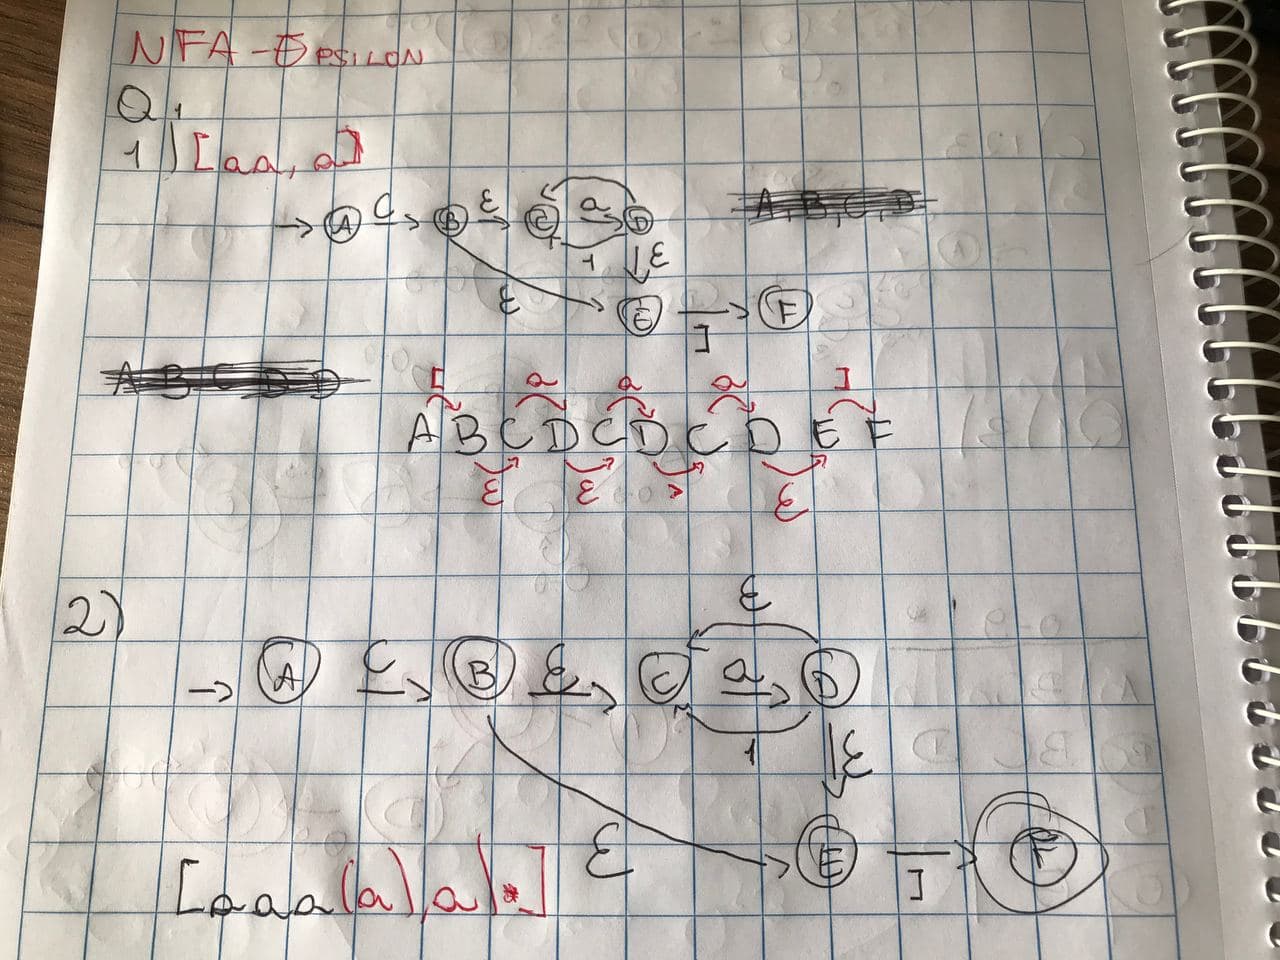 NFA-EPSILON
Q1
1) [aa, a]
→ A [ → B ε → C a → D
, ε
ε E ] → F
[ a a a ]
A B C D C D C D E F
ε ε , ε
2)
ε
→ A [ → B ε → C a → D
, ε
ε E ] → F
[aaa(a),a)*]